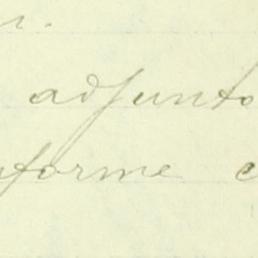 adjunto
forme